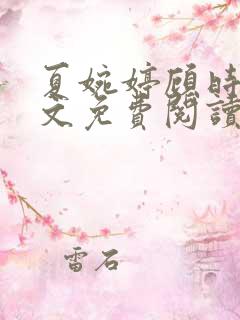 夏婉婷顾时
文免費閱讀
雷石